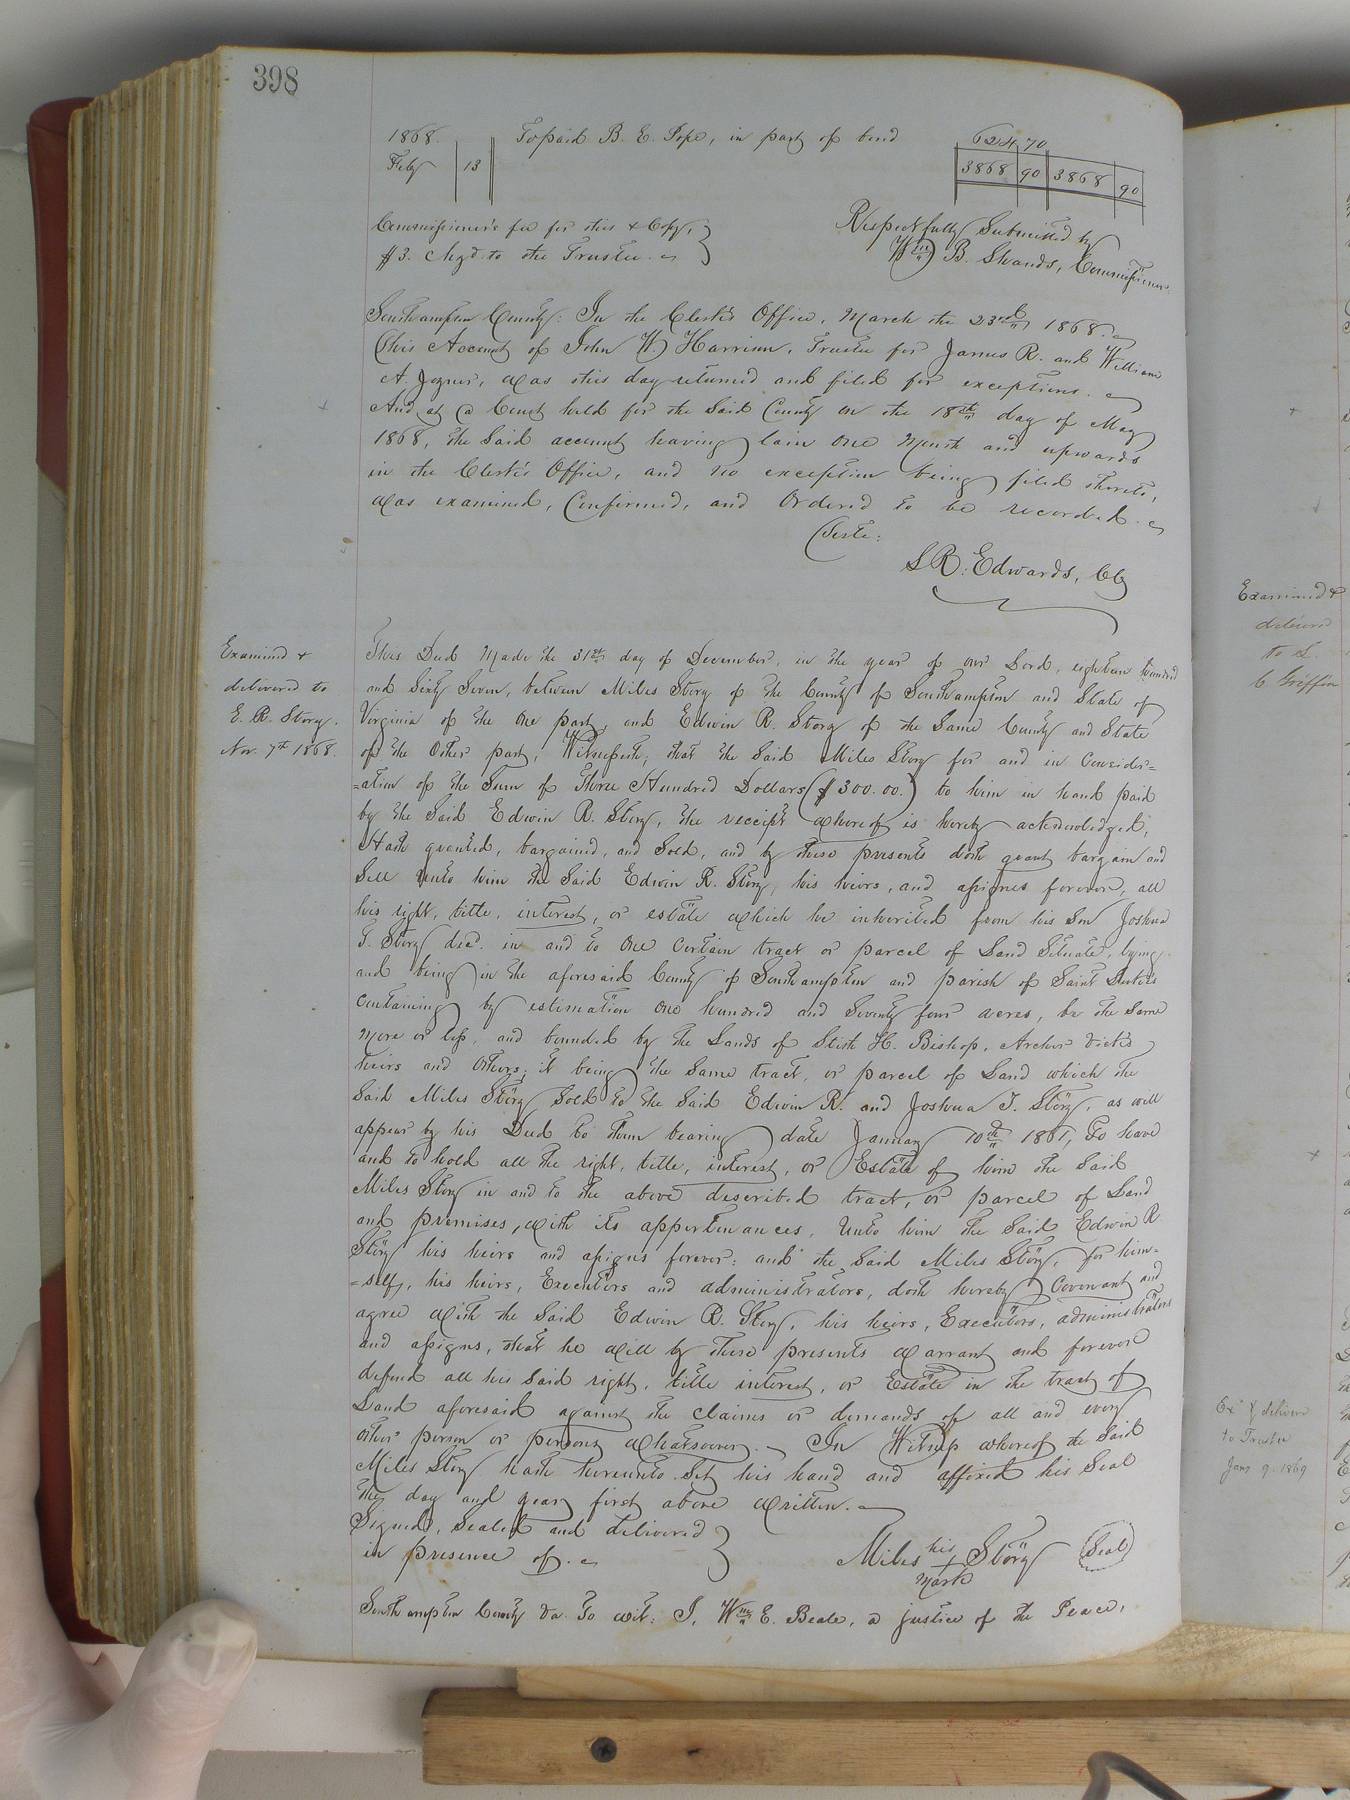 398
1868. To paid B. E. Pope, in part of bond 624 70
Feby 13 3868 90 3868 90
Commissioner's fee for this & Copy,
$3. chg'd to the Trustee.
Respectfully Submitted by
Wm B. Shands, Commissioner.
Southampton County: In the Clerk's Office, March the 23rd 1868.
This Account of John W. Harrison, Trustee for James R. and William
A. Joyner, was this day returned and filed for exceptions.
And at a Court held for the Said County on the 18th day of May
1868, the Said account having lain one Month and upwards
in the Clerk's Office, and no exception being filed thereto,
was examined, Confirmed, and Ordered to be recorded.
Teste:
L R. Edwards, CC
Examined &
delivered to
E. R. Story.
Nov. 7th 1868.
This Deed Made the 31st day of December, in the year of our Lord, eighteen hundred
and Sixty Seven, between Miles Story of the County of Southampton and State of
Virginia of the one part, and Edwin R. Story of the Same County and State
of the Other part, Witnesseth; that the Said Miles Story for and in Consider=
=ation of the Sum of Three Hundred Dollars ($300.00.) to him in hand paid
by the Said Edwin R. Story, the receipt whereof is hereby acknowledged,
Hath granted, bargained, and Sold, and by these presents doth grant bargain and
Sell unto him the Said Edwin R. Story, his heirs, and assigns forever, all
his right, title, interest, or estate which he inherited from his Son Joshua
T. Story dec'd. in and to one Certain tract or parcel of Land Situate, lying
and being in the aforesaid County of Southampton and parish of Saint Lukes
Containing by estimation one hundred and Seventy four acres, be the Same
more or less, and bounded by the Lands of Stith H. Bishop, Archer Vick's
heirs and others; it being the Same tract, or parcel of Land which the
Said Miles Story Sold to the Said Edwin R. and Joshua T. Story, as will
appear by his Deed to them bearing date January 10th 1861, To have
and to hold all the right, title, interest, or Estate of him the Said
Miles Story in and to the above described tract, or parcel of Land
and premises, with its appertenances, Unto him the Said Edwin R.
Story his heirs and assigns forever: and the Said Miles Story, for him=
=self, his heirs, Executors and administrators, doth hereby Covenant and
agree with the Said Edwin R. Story, his heirs, Executors, administrators
and assigns, that he will by these presents warrant and forever
defend all his Said right, title interest, or Estate in the tract of
Land aforesaid against the claims or demands of all and every
other person or persons whatsoever. In Witness whereof the Said
Miles Story hath hereunto Set his hand and affixed his Seal
the day and year first above written.
Signed, Sealed and delivered
in presence of.
Miles his Story Seal
mark
Southampton County Va To wit: I, Wm E. Beale, a justice of the Peace,
Examined &
delivered
to
Griffin
Ex'd & deliver
to Trustee
Jany 9. 1869